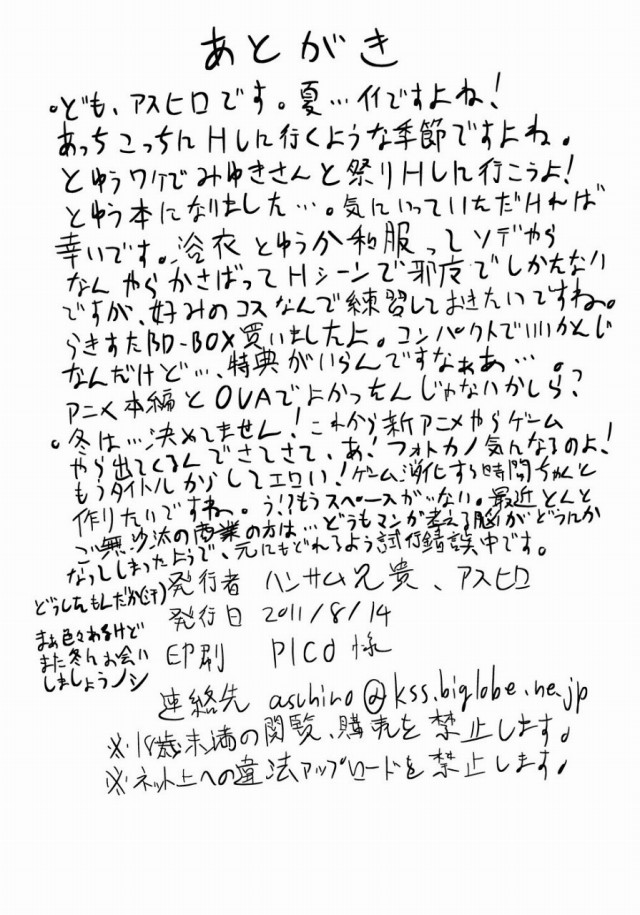 あとがき
。ども、アスヒロです。夏…イイですよね!
あっちこっちにHしに行くような季節ですよね。
とゆうワケでみゆきさんと祭りHしに行こうよ!
とゆう本になりました…。気にいっていただければ
幸いです。浴衣とゆうか和服ってソデやら
なんやらかさばってHシーンで邪魔でしかたない
ですが、好みのコスなんで練習しておきたいですね。
らきすたBD-BOX買いましたよ。コンパクトでいいかんじ
なんだけど…、特典がいらんですなぁあ…。
アニメ本編とOVAでよかったんじゃないかしら?
。冬は…決めてません!これから新アニメやらゲーム
やら出てくるんでさてさて、あ!フォトカノ気になるのよ!
もうタイトルからしてエロい!ゲーム消化する時間ちゃんと
作りたいですね。う!?もうスペースがッない。最近とんと
ご無沙汰の商業の方は…どうもマンガ考える脳がどうにか
なってしまったようで、元にもどれるよう試行錯誤中です。
どうしたもんだか(汗)
まぁ色々あるけど
また冬にお会い
しましょうノシ
発行者 ハンサム兄貴、アスヒロ
発行日 2011/8/14
印刷 PICO様
連絡先 asuhiro@kss.biglobe.ne.jp
※18歳未満の閲覧、購売を禁止します。
※ネット上への違法アップロードを禁止します。